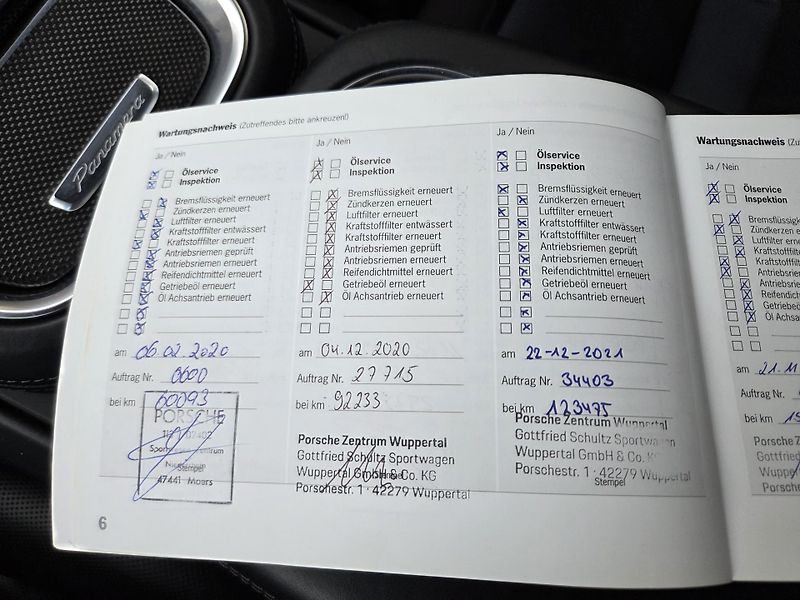 Panamera
Wartungsnachweis (Zutreffendes bitte ankreuzen!)
Ja / Nein
Ölservice
Inspektion
Bremsflüssigkeit erneuert
Zündkerzen erneuert
Luftfilter erneuert
Kraftstofffilter entwässert
Kraftstofffilter erneuert
Antriebsriemen geprüft
Antriebsriemen erneuert
Reifendichtmittel erneuert
Getriebeöl erneuert
Öl Achsantrieb erneuert
am 06.02.2020
Auftrag Nr. 0000
bei km 60093
PORSCHE
47441 Moers
Stempel
6
Ja / Nein
Ölservice
Inspektion
Bremsflüssigkeit erneuert
Zündkerzen erneuert
Luftfilter erneuert
Kraftstofffilter entwässert
Kraftstofffilter erneuert
Antriebsriemen geprüft
Antriebsriemen erneuert
Reifendichtmittel erneuert
Getriebeöl erneuert
Öl Achsantrieb erneuert
am 04.12.2020
Auftrag Nr. 27715
bei km 92233
Porsche Zentrum Wuppertal
Gottfried Schultz Sportwagen
Wuppertal GmbH & Co. KG
Porschestr. 1 · 42279 Wuppertal
Ja / Nein
Ölservice
Inspektion
Bremsflüssigkeit erneuert
Zündkerzen erneuert
Luftfilter erneuert
Kraftstofffilter entwässert
Kraftstofffilter erneuert
Antriebsriemen geprüft
Antriebsriemen erneuert
Reifendichtmittel erneuert
Getriebeöl erneuert
Öl Achsantrieb erneuert
am 22-12-2021
Auftrag Nr. 34403
bei km 123475
Porsche Zentrum Wuppertal
Gottfried Schultz Sportwagen
Wuppertal GmbH & Co. KG
Porschestr. 1 · 42279 Wuppertal
Stempel
Wartungsnachweis (Zu
Ja / Nein
Ölservice
Inspektion
Bremsflüssig
Zündkerzen e
Luftfilter er
Kraftstofffi
Kraftstofffi
Antriebsri
Antriebsri
Reifendic
Getriebeö
Öl Achsan
am 21.11
Auftrag Nr.
bei km
Porsche Z
Gottfried
Wupper
Porsche